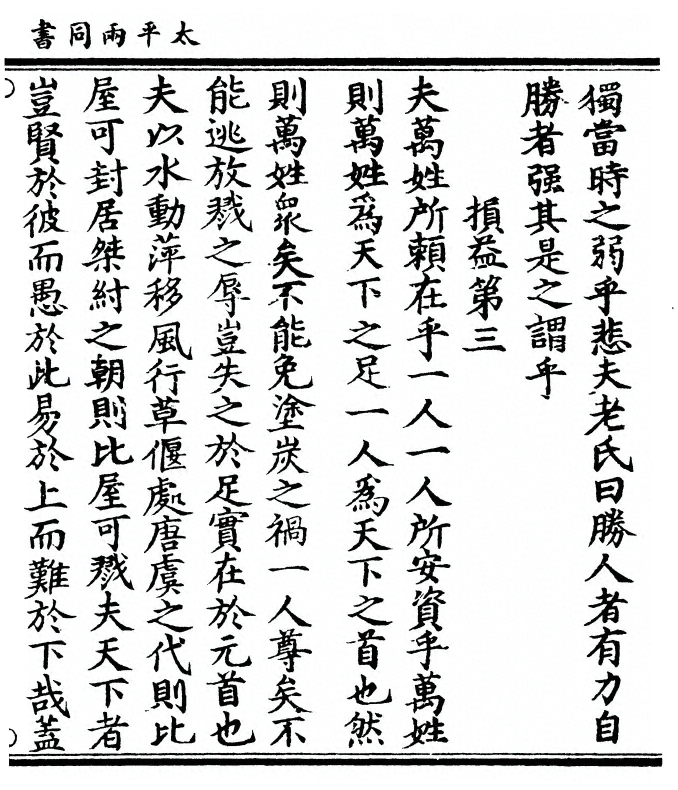 太平兩同書
獨當時之弱乎悲夫老氏曰勝人者有力自
勝者强其是之謂乎
損益第三
夫萬姓所賴在乎一人一人所安資乎萬姓
則萬姓為天下之足一人為天下之首也然
則萬姓眾矣不能免塗炭之禍一人尊矣不
能逃放戮之辱豈失之於足實在於元首也
夫以水動萍移風行草偃處唐虞之代則比
屋可封居桀紂之朝則比屋可戮夫天下者
豈賢於彼而愚於此易於上而難於下哉蓋